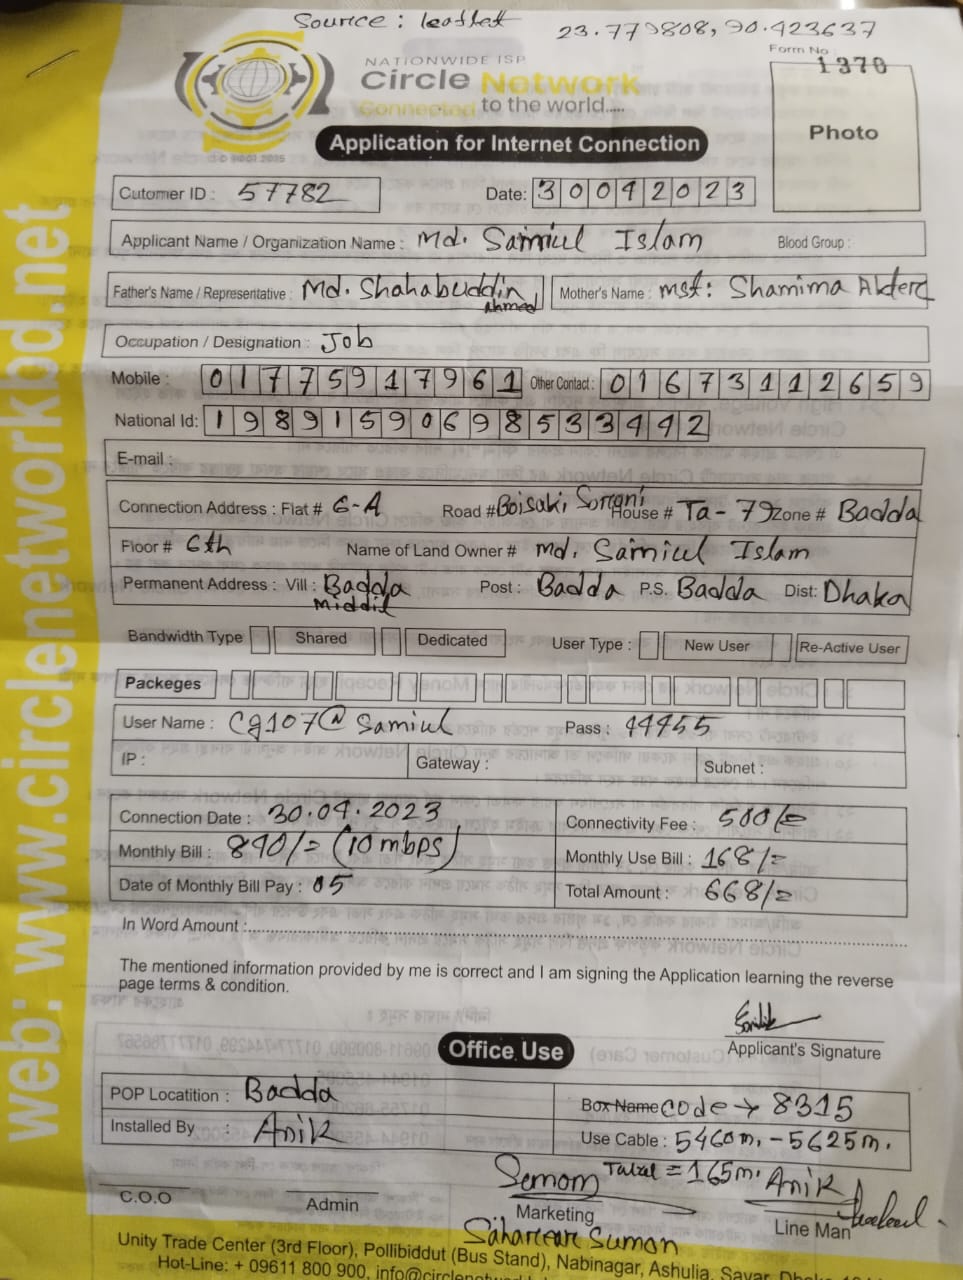 Source : leaflet 23.779808, 90.423637
NATIONWIDE ISP
Form No :
1370
Circle Network
Connected to the world.....
ISO 9001:2015
Photo
Application for Internet Connection
Cutomer ID : 57782 Date: 30042023
Applicant Name / Organization Name : Md. Samiul Islam Blood Group :
Father's Name / Representative : Md. Shahabuddin Ahmed Mother's Name : Mst: Shamima Akter
Occupation / Designation : Job
Mobile : 01775917961 Other Contact : 01673112659
National Id: 19891590698533442
E-mail :
Connection Address : Flat # 6-A Road # Boisaki Soroni House # Ta-79 Zone # Badda
Floor # 6th Name of Land Owner # Md. Samiul Islam
Permanent Address : Vill : Badda Middil Post : Badda P.S. Badda Dist: Dhaka
Bandwidth Type Shared Dedicated User Type : New User Re-Active User
Packeges
User Name : Cg107@Samiul Pass : 44455
IP : Gateway : Subnet :
Connection Date : 30.04.2023 Connectivity Fee : 500/=
Monthly Bill : 840/= (10mbps) Monthly Use Bill : 168/=
Date of Monthly Bill Pay : 05 Total Amount : 668/=
In Word Amount :
The mentioned information provided by me is correct and I am signing the Application learning the reverse
page terms & condition.
Applicant's Signature
Office Use
POP Locatition : Badda Box Name Code → 8315
Installed By : Anik Use Cable : 5460m. - 5625m.
Total = 165m.
Semom Anik
C.O.O Admin Marketing Line Man
Suman
Unity Trade Center (3rd Floor), Pollibiddut (Bus Stand), Nabinagar, Ashulia, Savar, Dhaka
Hot-Line: + 09611 800 900, info@circlenetwo
web: www.circlenetworkbd.net